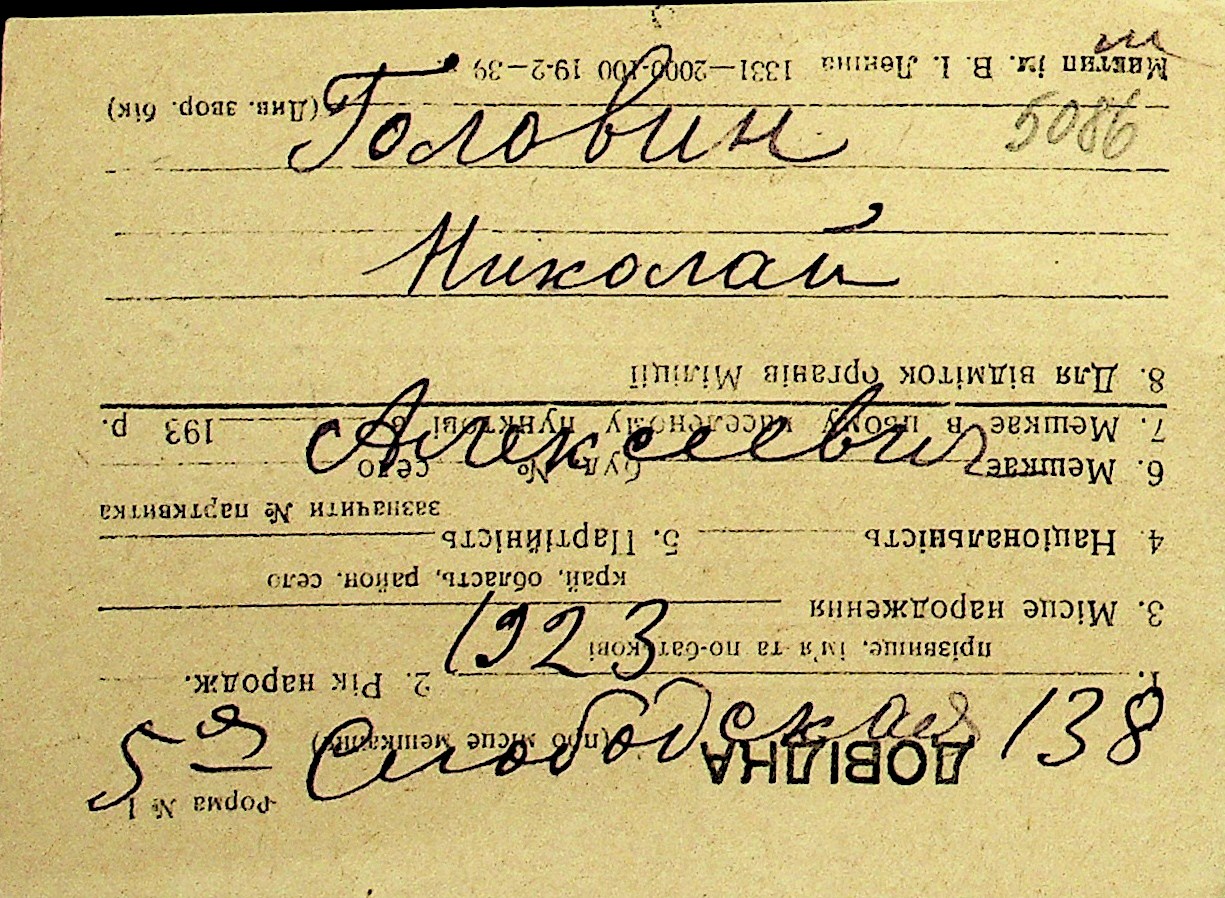 Головин
5086
Николай
Алексеевич
1923
5я Слободская 138
Форма № 1
ДОВІДКА
(про місце мешкання)
1.
прізвище, ім'я та по-батькові
2. Рік народж.
3. Місце народження
край, область, район, село
4. Національність 5. Партійність
зазначити № партквитка
6. Мешкає буд. № село
7. Мешкає в цьому населеному пункті з 193 р.
8. Для відміток органів Міліції
(Див. звор. бік)
ім. В. І. Леніна 1331—2000×100 19-2-39